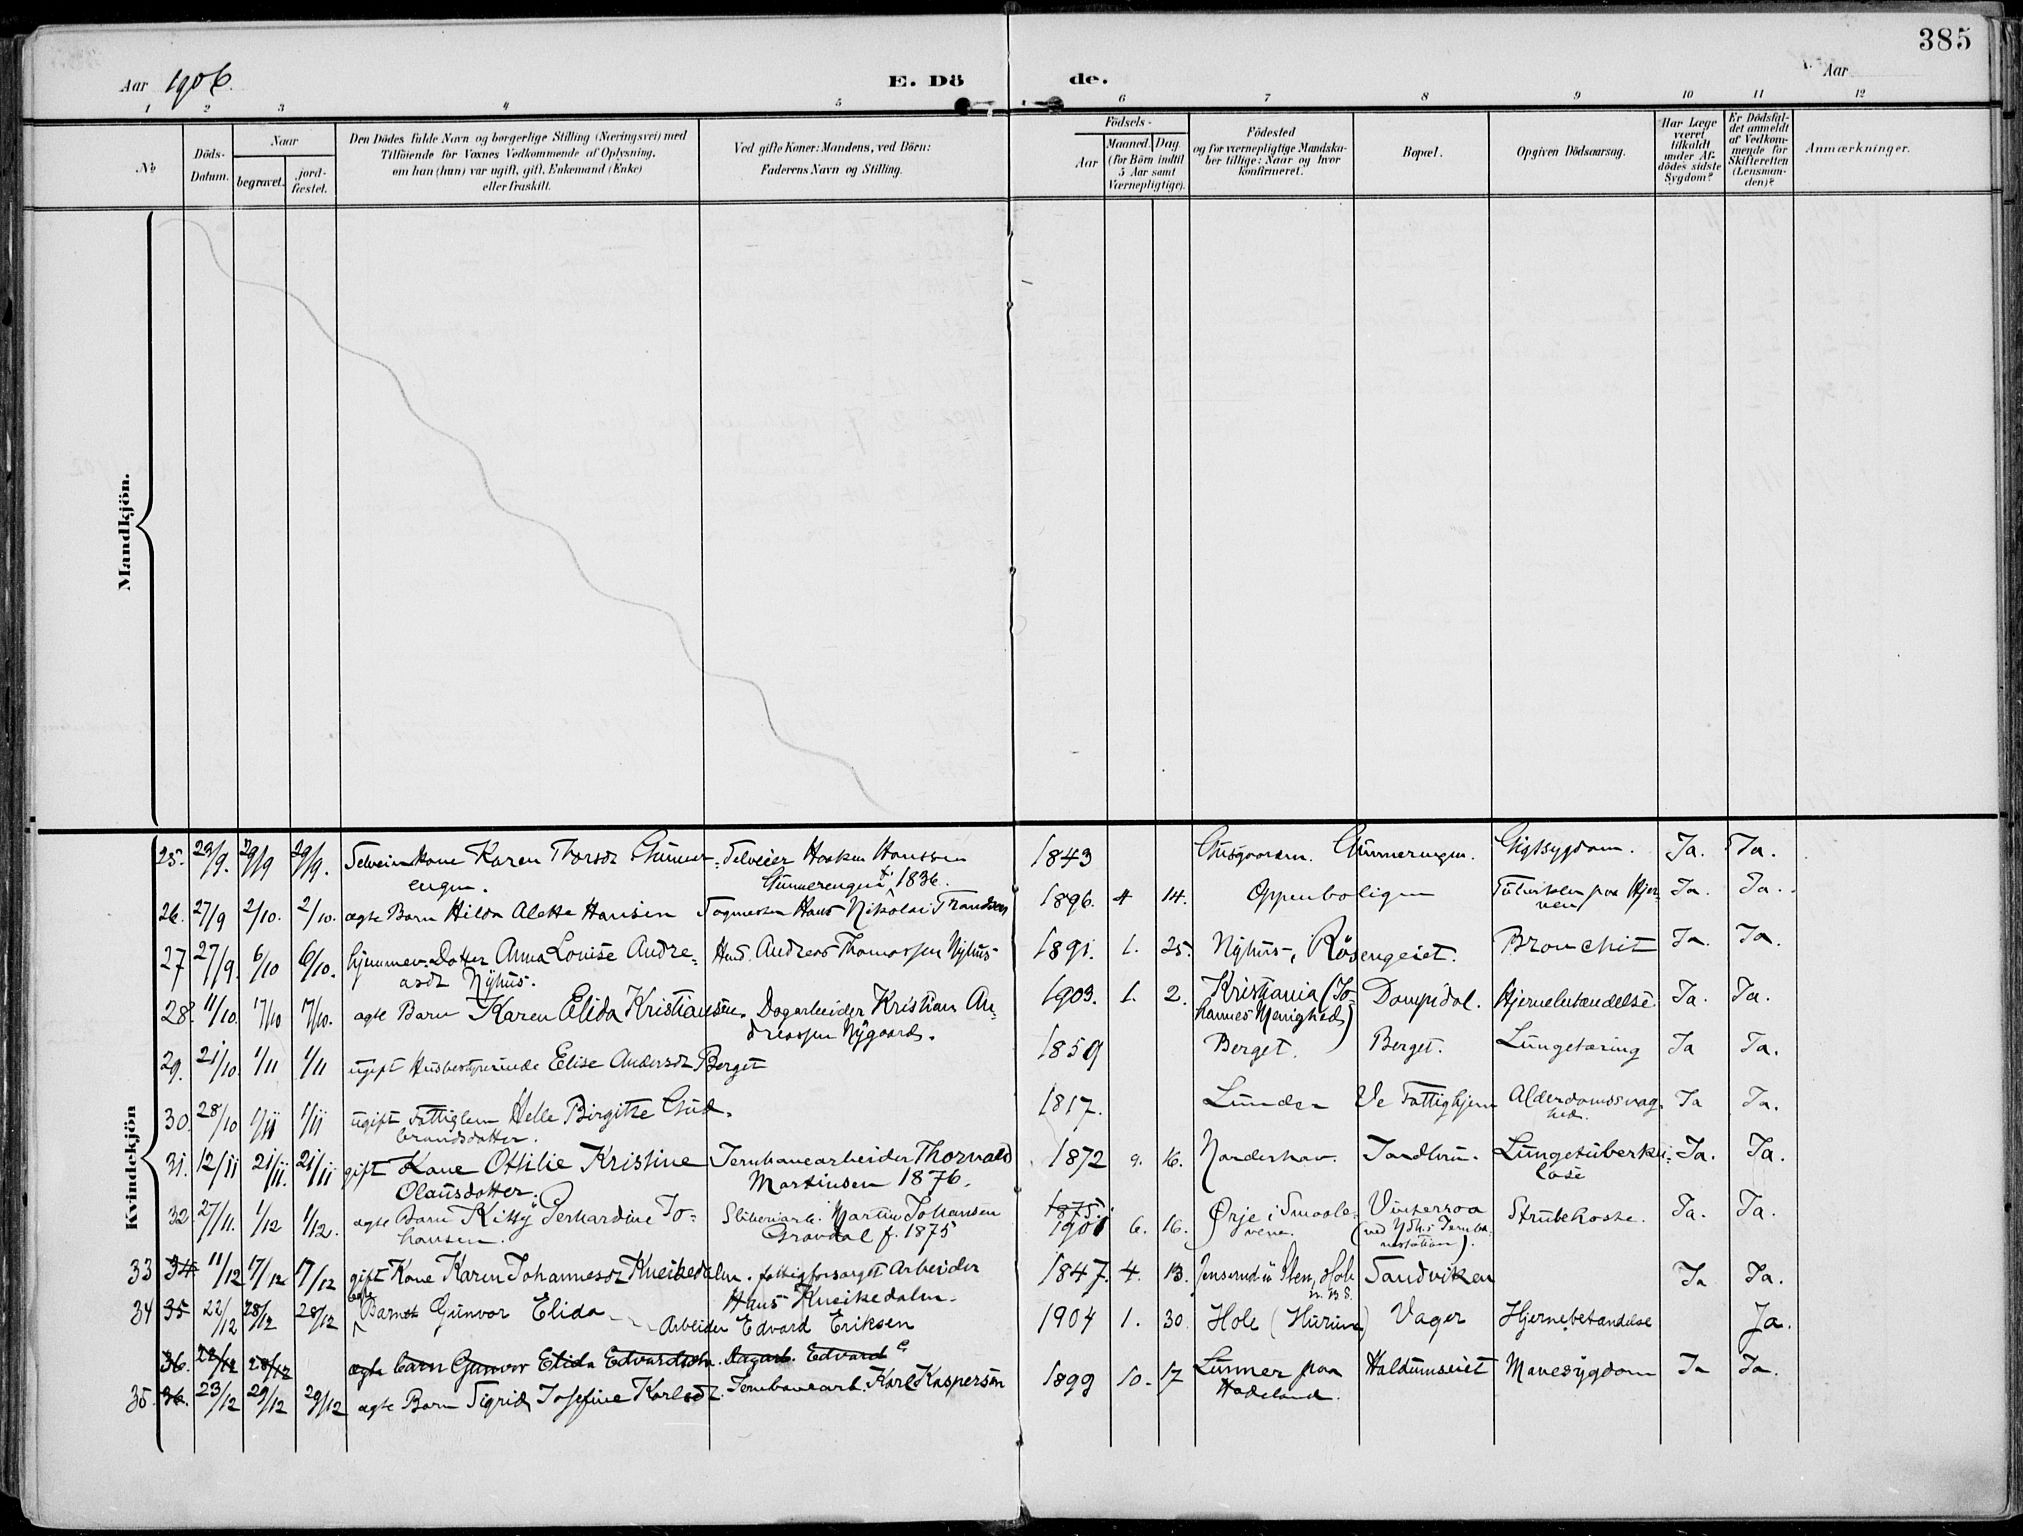 385
Aar 1906.
E. Dö de.
Aar
1 2 3 4 5 6 7 8 9 10 11 12
No
Döds-
Datum.
Naar
begravet.
jord-
fæstet.
Den Dödes fulde Navn og borgerlige Stilling (Næringsvei) med
Tilföiende for Voxnes Vedkommende af Oplysning,
om han (hun) var ugift, gift, Enkemand (Enke)
eller fraskilt.
Ved gifte Koner: Mandens, ved Börn:
Faderens Navn og Stilling.
Födsels-
Aar
Maaned. Dag.
(for Börn indtil
5 Aar samt
Værnepligtige).
Födested
og for værnepligtige Mandska-
ber tillige: Naar og hvor
konfirmeret.
Bopæl.
Opgiven Dödsaarsag.
Har Læge
været
tilkaldt
under Af-
dödes sidste
Sygdom?
Er Dödsfal-
det anmeldt
af Vedkom-
mende for
Skifteretten
(Lensman-
den)?
Anmærkninger.
Mandkjön.
Kvindekjön
25. 29/9 29/9 29/9. Selveierkone Karen Thorsdt Selveier Haaken Hanssen 1843 Gigtsygdom. Ja. Ja.
engen. 1836.
26. 27/9 2/10. 2/10. ægte Barn Hilda Alette Hansen Hans Nikolai Trandsen 1896. 4 14. Oppenboligen paa Hjer- Ja. Ja.
nen
27 27/9. 6/10 6/10. hjemmev. Datter Anna Louise Andre- Andreas Thomassen Nyhus 1891. 1. 25. Nyhus, Røsengeiet. Bronchit Ja. Ja.
asdt Nyhus.
28. 11/10. 17/10 17/10. ægte Barn Karen Elida Kristiansen. Dagarbeider Kristian An- 1903. 1. 2. Kristiania (Jo- Hjernebetændelse Ja. Ja.
dreassen Nygaard. hannes Menighed)
29. 21/10. 1/11 1/11 ugift Husbestyrerinde Elise Andersdt Berget 1859 Berget. Berget. Lungetæring Ja Ja.
30. 28/10 1/11 1/11 ugift Fattiglem Helle Birgitte Gud- 1817. Lunder Ve Fattighjem Alderdomssvag- Ja Ja.
brandsdatter. hed.
31. 12/11 21/11. 21/11 gift Kone Othilie Kristine Jernbanearbeider Thorvald 1872 9. 16. Norderhov. Tandberg. Lungetuberku- Ja. Ja.
Olausdatter. Martinsen 1876. lose
32. 27/11. 1/12 1/12. ægte Barn Kitty Gerhardine Jo- Sliberiarb. Martin Johansen 1875. 1901 6. 16. Ørje i Smaale- Strubehoste. Ja. Ja.
hansen. Gravdal f. 1875 nene.
33 34 11/12 17/12 17/12 gift Kone Karen Johannesdt Kneikedalen. fattigforsørget Arbeider 1847. 4. 13. Hole Sandviken Ja Ja.
Hans Kneikedalen.
34 35 22/12 28/12 28/12 Barnet Gunvor Elida Arbeider Edvard Eriksen 1904 1. 30. Hole (Hurum) Vager Hjernebetændelse Ja.
36. 22/12 28/12 ægte barn Gunvor Elida Edvardsdtr. Dagarb. Edvard E
35. 36. 23/12 29/12 29/12 ægte Barn Sigrid Josefine Karlsdt. Jernbanearb. Karl Kaspersen 1899 10. 17 Lunner paa Haldumseiet Mavesygdom Ja Ja.
Hadeland.